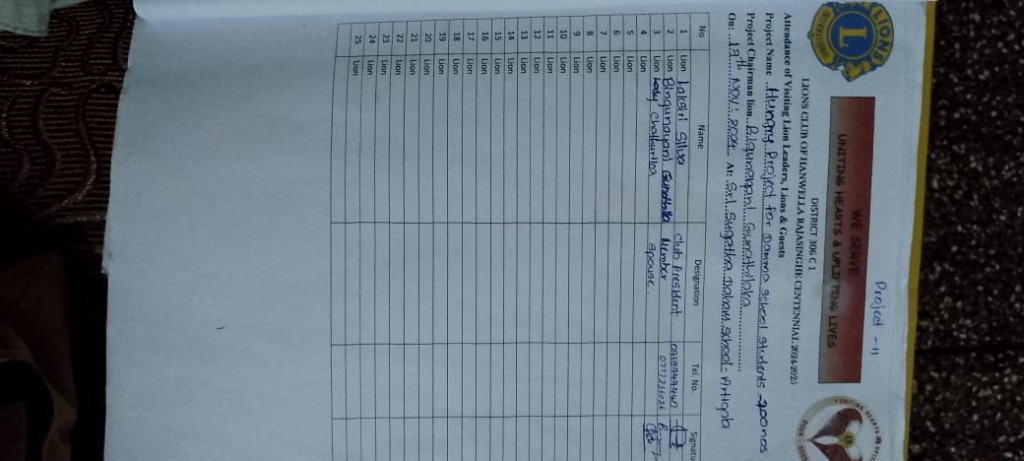 Project - 11
LIONS
L
INTERNATIONAL
WE SERVE
UNITING HEARTS & UPLIFTING LIVES
DISTRICT 306 C 1
LIONS CLUB OF HANWELLA RAJASINGHE CENTENNIAL 2024-2025
Attendance of Visiting Lion Leaders, Lions & Guests
Project Name ..Hungry Project for Damma school students
Project Chairman lion..
On: ..17th.. NOV: 2024.. At: Sri.. Daham.school-
No Name Designation Tel. No. Signatu
1 Lion Laksiri Silva Club President
2 Lion Member
3 Lion Lady Spouse.
4 Lion
5 Lion
6 Lion
7 Lion
8 Lion
9 Lion
10 Lion
11 Lion
12 Lion
13 Lion
14 Lion
15 Lion
16 Lion
17 Lion
18 Lion
19 Lion
20 Lion
21 Lion
22 Lion
23 Lion
24 Lion
25 Lion